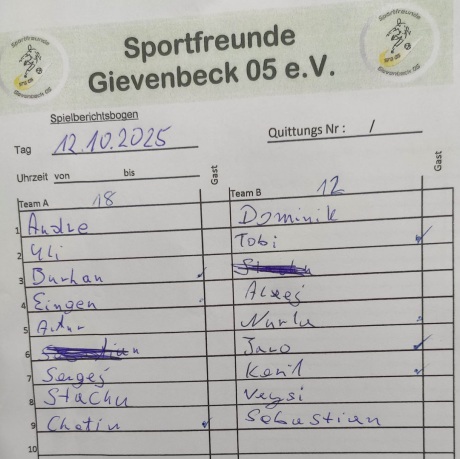 Sportfreunde
Gievenbeck 05 e.V.
Sportfreunde
SFG 05
Gievenbeck 05
Sportfreunde
Gievenbeck 05
Spielberichtsbogen
Tag 12.10.2025 Quittungs Nr : /
Uhrzeit von bis Gast Gast
Team A 18 Team B 12
1 Andre Dominik
2 Uli Tobi
3 Burhan
4 Eingen Alexej
5 Artur Nurlu
6 Jaro
7 Sergej Keril
8 Stachu Veysi
9 Chetin Sebastian
10